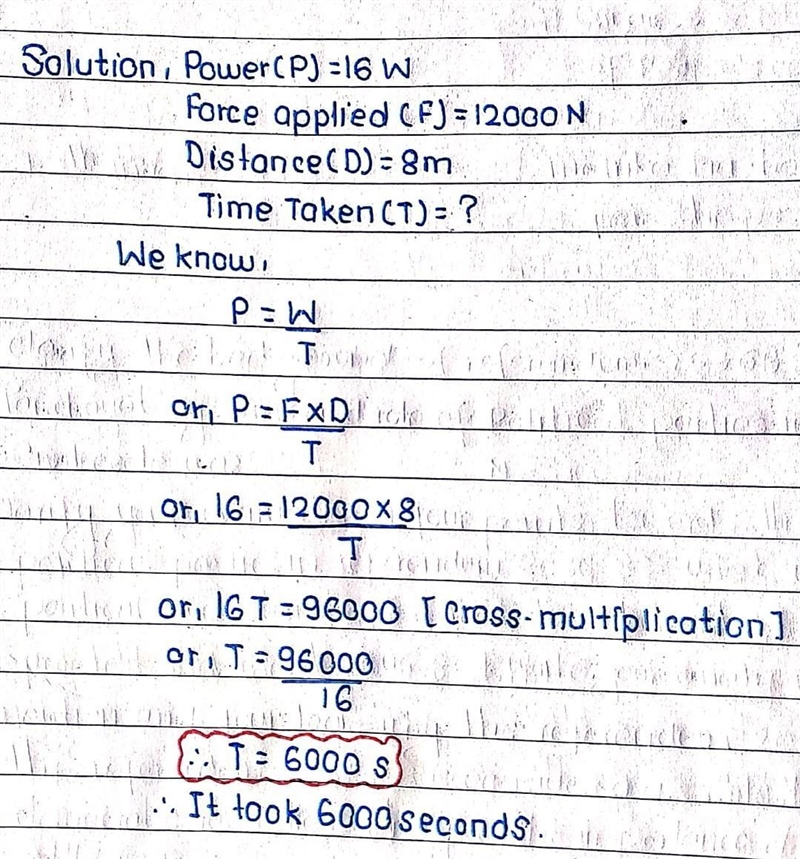 Solution, Power(P)=16 W
Force applied (F)=12000 N
Distance(D)=8m
Time Taken(T)=?
We know,
P = W
T
or, P = F×D
T
or, 16 = 12000×8
T
or, 16 T = 96000 [Cross-multiplication]
or, T = 96000
16
∴ T = 6000 s
∴ It took 6000 seconds.